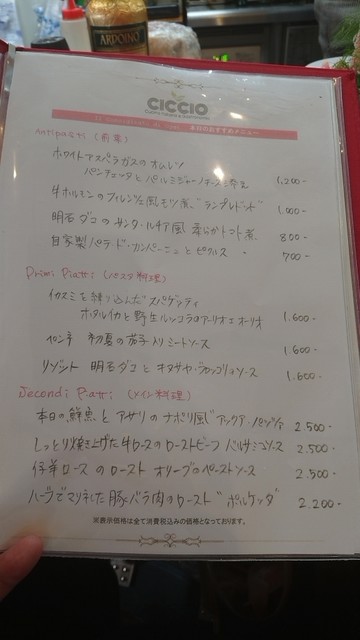 ARDOINO
CICCIO
本日のおすすめメニュー
Antipasti (前菜)
ホワイトアスパラガスのオムレツ
パンチェッタとパルミジャーノチーズ 1,200-
牛ホルモンのフィレンツェ風モツ煮"ランプレドット" 1,000-
明石ダコのサンタ・ルチア風 柔らかトマト煮 800-
自家製パテ・ド・カンパーニュとピクルス 700-
Primi Piatti (パスタ料理)
イカスミを練り込んだスパゲッティ
ホタルイカと野生ルッコラのアーリオ エ オーリオ 1.600-
初夏の茄子入りミートソース 1.600-
リゾット 明石ダコと ソース 1.600-
Secondi Piatti (メイン料理)
本日の鮮魚とアサリのナポリ風"アックア・パッツァ" 2.500-
しっとり焼き上げた牛ロースのローストビーフ バルサミコソース 2.500-
仔羊ロースのロースト オリーブのペーストソース 2.500-
ハーブでマリネした豚バラ肉のロースト"ポルケッタ" 2.200-
※表示価格は全て消費税込みの価格となっております。